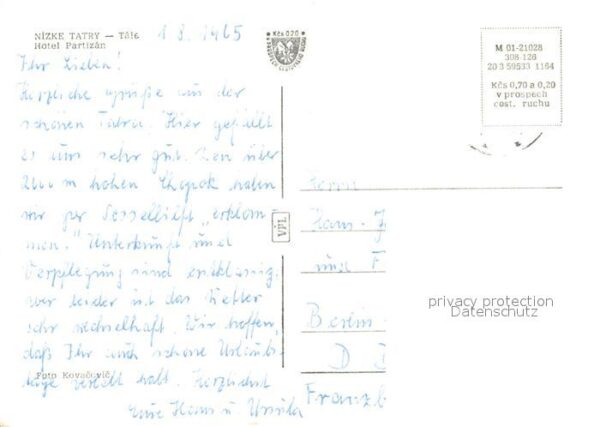 NÍZKE TATRY — Tále
Hotel Partizán
1.8.1965
Ihr Lieben!
Herzliche Grüße aus der
schönen Tatra. Hier gefällt
es uns sehr gut. Den über
2000 m hohen Chopok haben
wir per Sessellift „erklom-
men." Unterkunft und
Verpflegung sind erstklassig,
aber leider ist das Wetter
sehr wechselhaft. Wir hoffen,
daß Ihr auch schöne Urlaubs-
tage verlebt habt. Herzlichst
Eure Hans u. Ursula
Foto Kovačovič
Kčs 0,20
VPL
M 01-21028
308-126
20 3 59533 1164
Kčs 0,70 a 0,20
v prospech
cest. ruchu
Herrn
Hans-J
und F
Berlin-
Franzb
privacy protection
Datenschutz